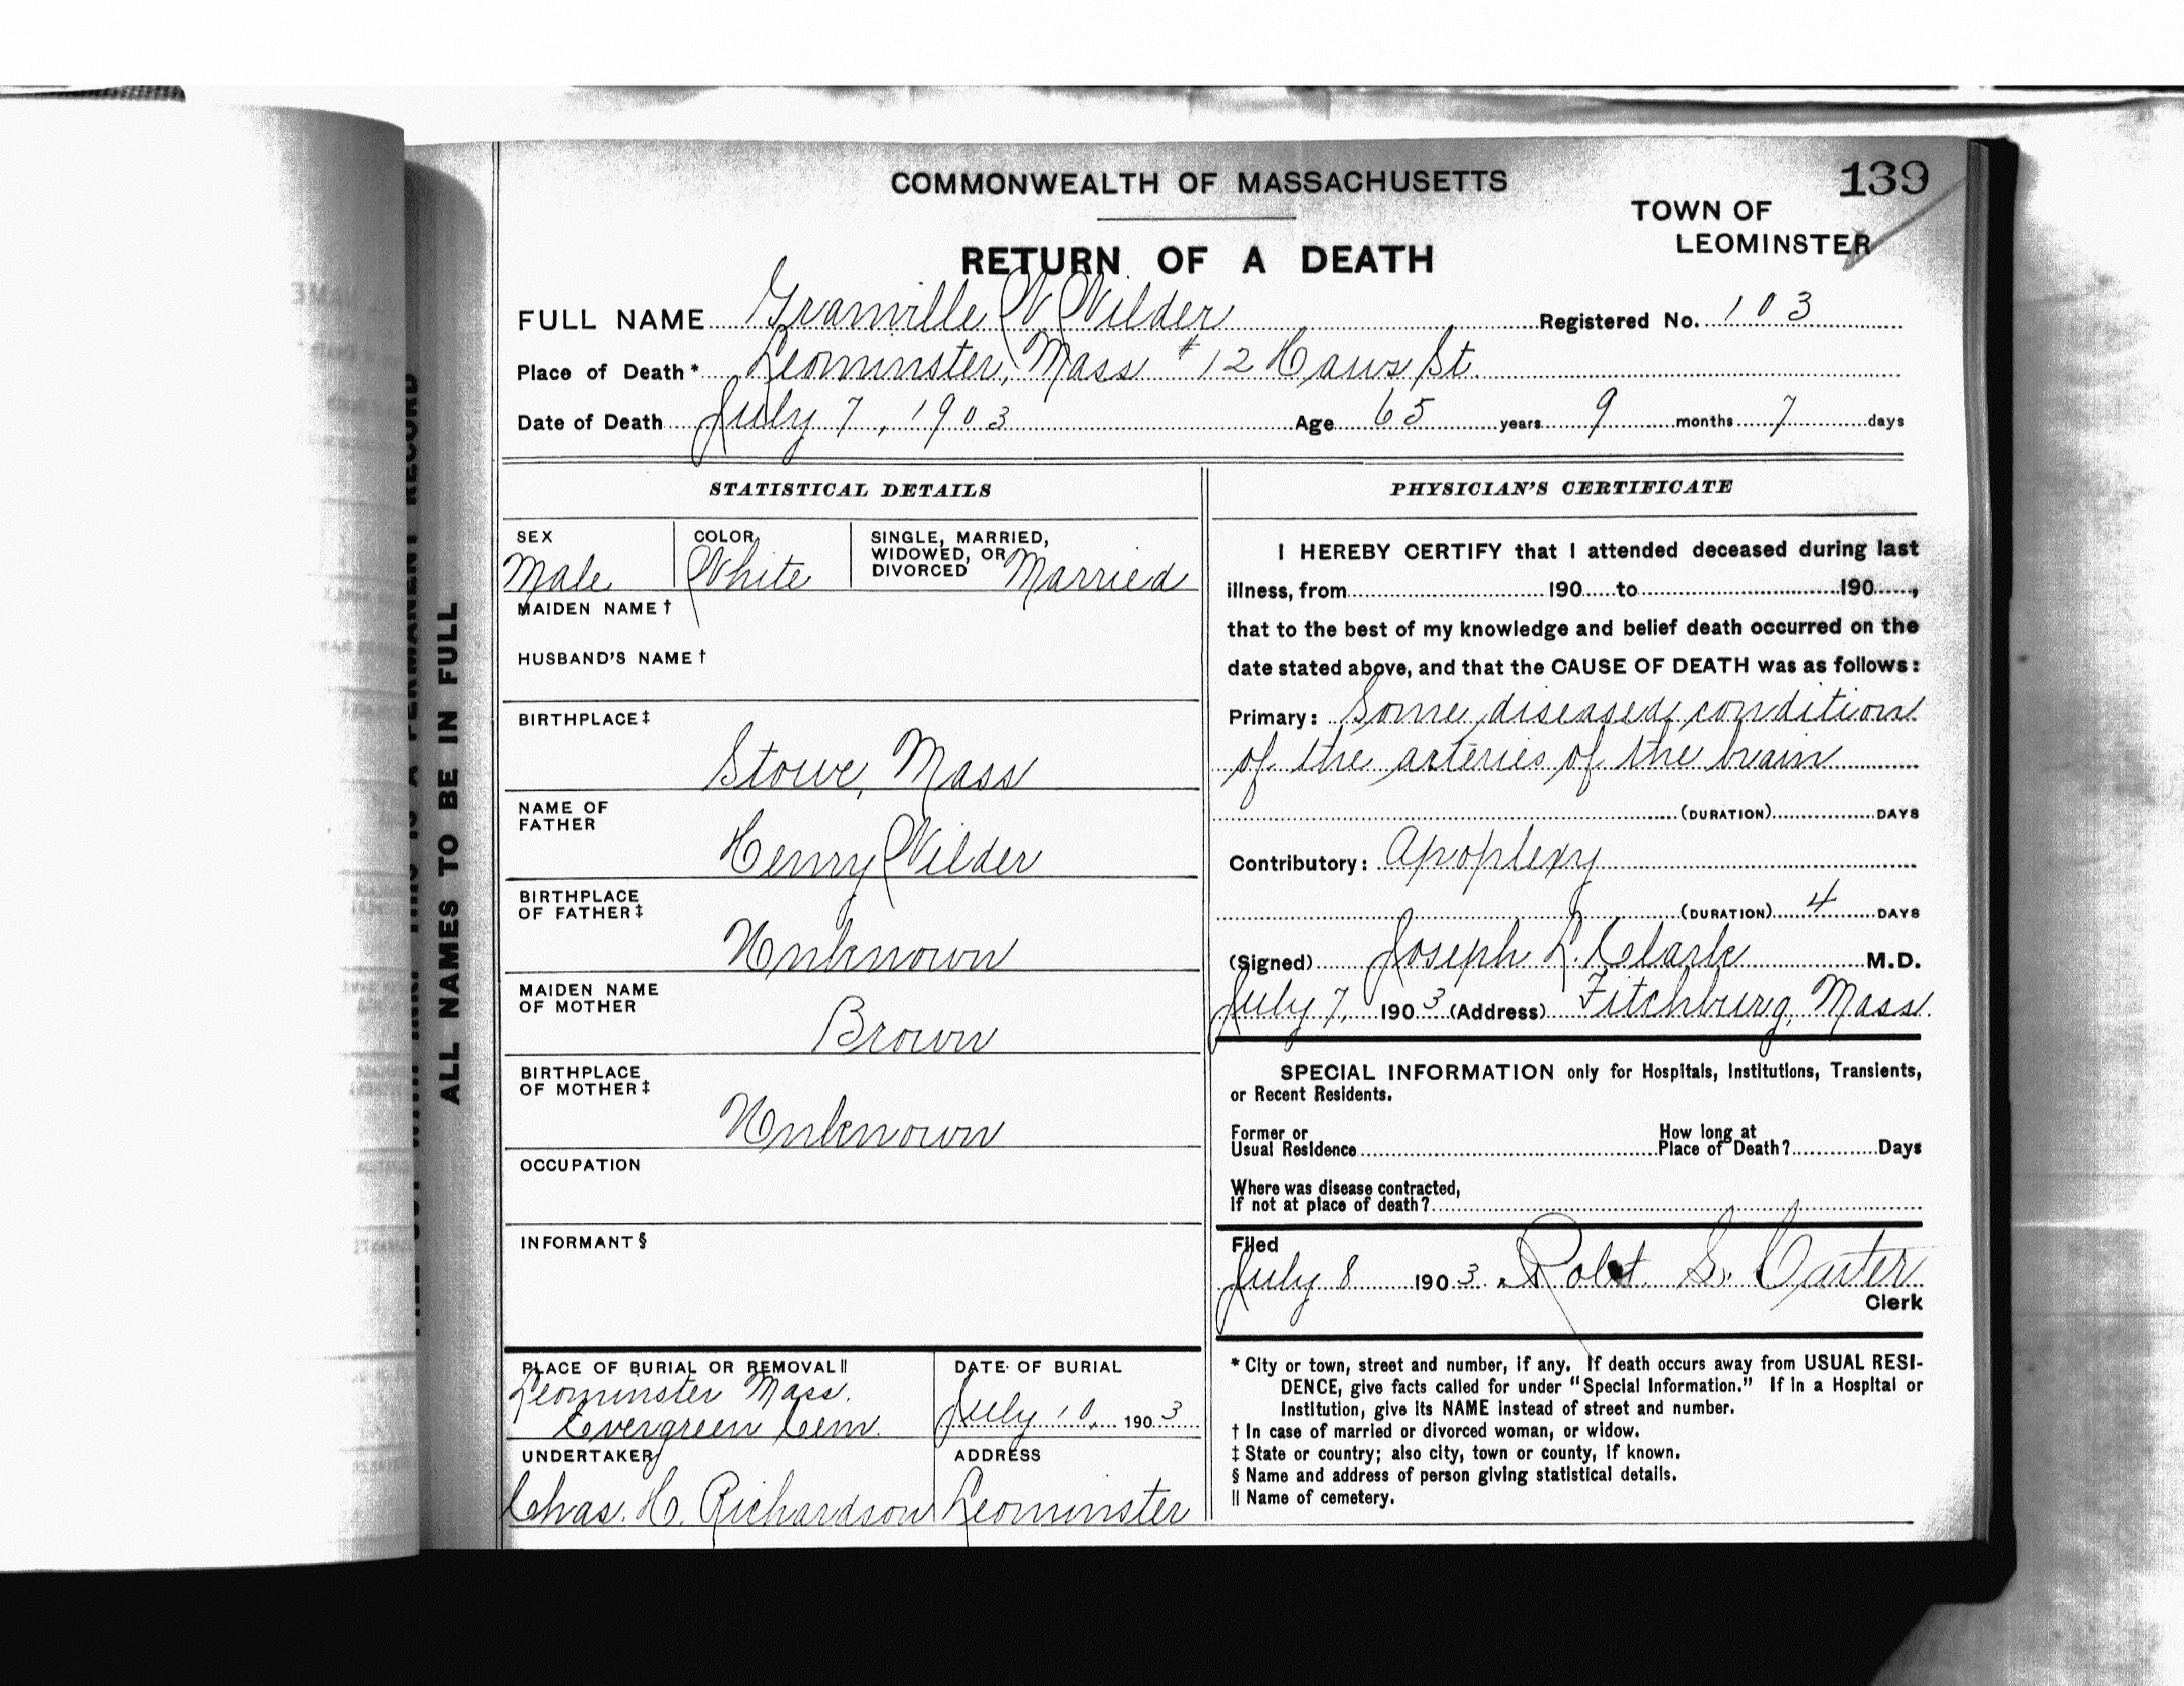 139
COMMONWEALTH OF MASSACHUSETTS
TOWN OF
LEOMINSTER
RETURN OF A DEATH
FULL NAME Granville W Wilder Registered No. 103
Place of Death* Leominster, Mass #12 Haws St.
Date of Death July 7, 1903 Age 65 years 9 months 7 days
ALL NAMES TO BE IN FULL
STATISTICAL DETAILS
SEX COLOR SINGLE, MARRIED,
WIDOWED, OR
DIVORCED
Male White Married
MAIDEN NAME†
HUSBAND'S NAME†
BIRTHPLACE‡
Stowe, Mass
NAME OF
FATHER
Henry Wilder
BIRTHPLACE
OF FATHER‡
Unknown
MAIDEN NAME
OF MOTHER
Brown
BIRTHPLACE
OF MOTHER‡
Unknown
OCCUPATION
INFORMANT§
PLACE OF BURIAL OR REMOVAL|| DATE OF BURIAL
Leominster Mass.
Evergreen Cem. July 10, 1903
UNDERTAKER ADDRESS
Chas. H. Richardson Leominster
PHYSICIAN'S CERTIFICATE
I HEREBY CERTIFY that I attended deceased during last
illness, from 190 to 190 ,
that to the best of my knowledge and belief death occurred on the
date stated above, and that the CAUSE OF DEATH was as follows:
Primary: Some diseased condition
of the arteries of the brain
(DURATION) DAYS
Contributory: Apoplexy
(DURATION) 4 DAYS
(Signed) Joseph L. Clark M.D.
July 7, 1903 (Address) Fitchburg, Mass.
SPECIAL INFORMATION only for Hospitals, Institutions, Transients,
or Recent Residents.
Former or
Usual Residence
How long at
Place of Death? Days
Where was disease contracted,
If not at place of death?
Filed
July 8 1903 Robt. S. Carter
Clerk
* City or town, street and number, if any. If death occurs away from USUAL RESI-
DENCE, give facts called for under "Special Information." If in a Hospital or
Institution, give its NAME instead of street and number.
† In case of married or divorced woman, or widow.
‡ State or country; also city, town or county, if known.
§ Name and address of person giving statistical details.
|| Name of cemetery.